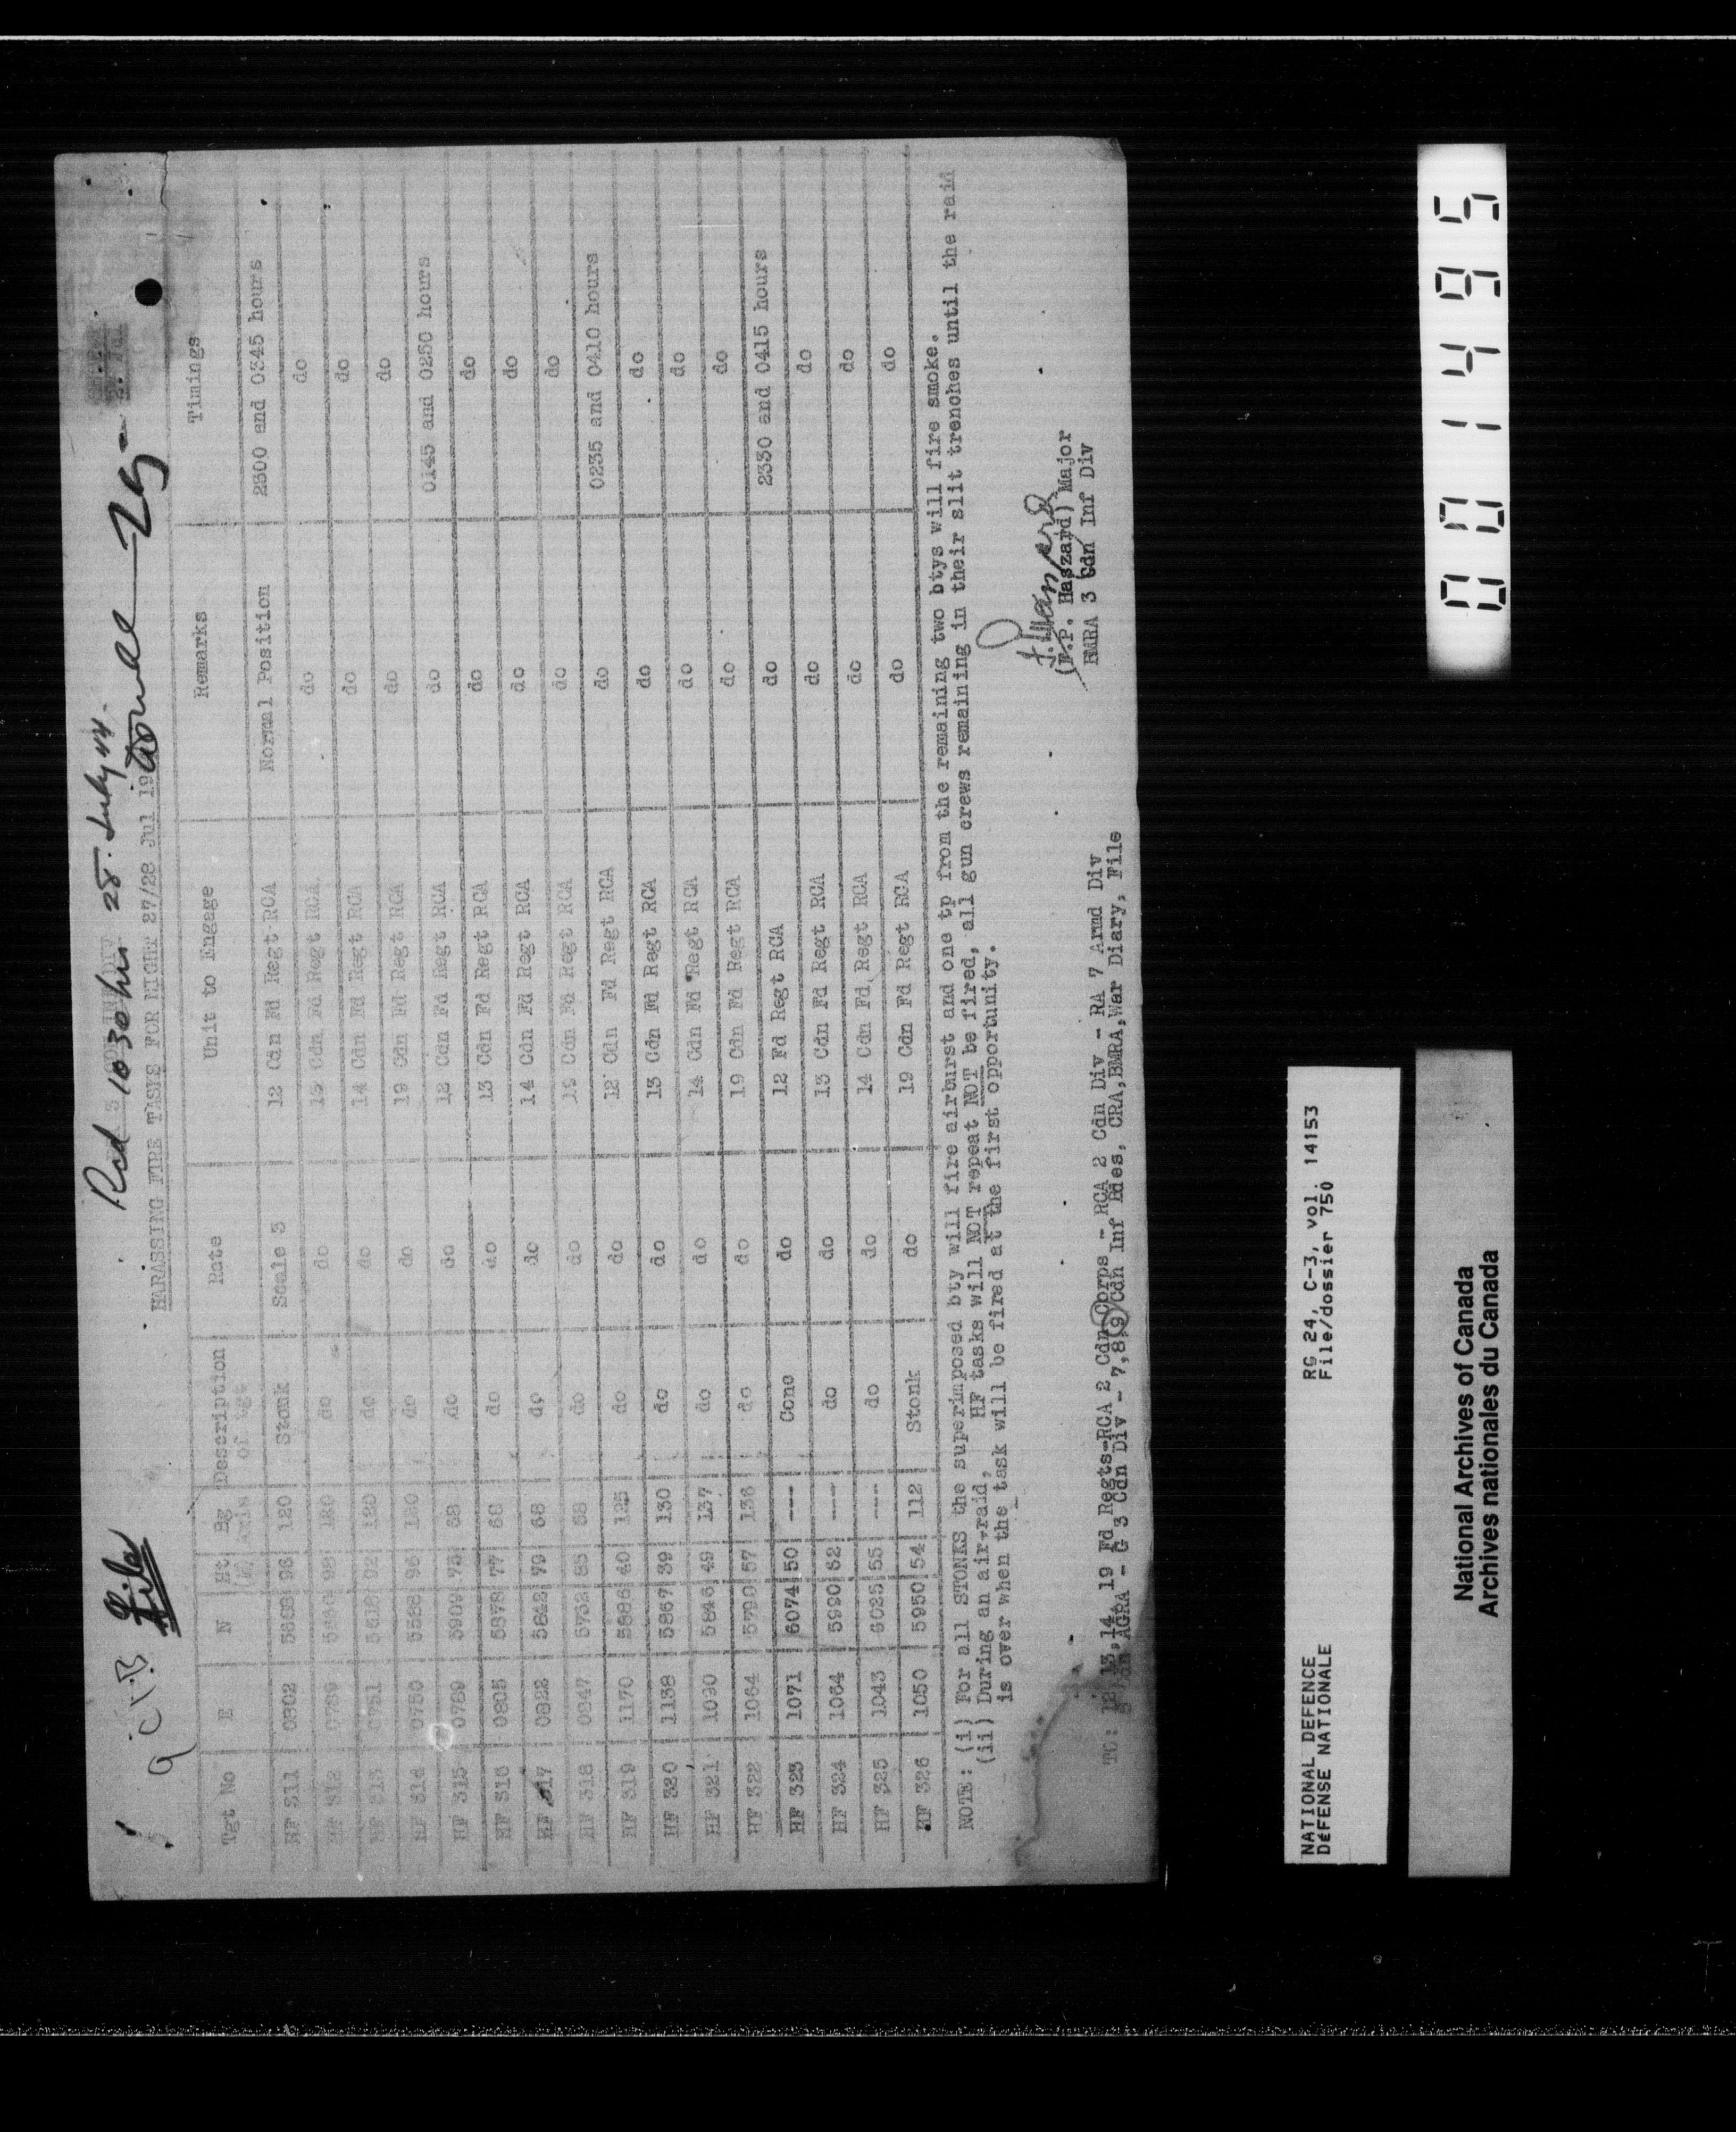 9 CIB File
Rcd 1030 hrs 28 July 44
HARASSING FIRE TASKS FOR NIGHT 27/28 Jul 19
Tgt No E N Ht Bg Description of tgt Rate Unit to Engage Remarks Timings
HF 311 0802 96 120 Stonk Scale 3 12 Cdn Fd Regt RCA Normal Position 2300 and 0345 hours
HF 312 0789 98 120 do do 13 Cdn Fd Regt RCA do do
HF 313 0751 92 120 do do 14 Cdn Fd Regt RCA do do
HF 314 0750 5588 96 do do 19 Cdn Fd Regt RCA do do
HF 315 0789 5909 75 68 do do 12 Cdn Fd Regt RCA do 0145 and 0250 hours
HF 316 0805 5878 77 68 do do 13 Cdn Fd Regt RCA do do
HF 317 0822 5842 79 68 do do 14 Cdn Fd Regt RCA do do
HF 318 0847 5732 85 68 do do 19 Cdn Fd Regt RCA do do
HF 319 1170 5886 40 125 do do 12 Cdn Fd Regt RCA do 0235 and 0410 hours
HF 320 1138 5867 39 130 do do 13 Cdn Fd Regt RCA do do
HF 321 1090 5846 49 137 do do 14 Cdn Fd Regt RCA do do
HF 322 1064 5790 57 136 do do 19 Cdn Fd Regt RCA do do
HF 323 1071 6074 50 --- Conc do 12 Fd Regt RCA do 2330 and 0415 hours
HF 324 1064 5990 62 --- do do 13 Cdn Fd Regt RCA do do
HF 325 1043 6025 55 --- do do 14 Cdn Fd Regt RCA do do
HF 326 1050 5950 54 112 Stonk do 19 Cdn Fd Regt RCA do do
NOTE: (i) For all STONKS the superimposed bty will fire airburst and one tp from the remaining two btys will fire smoke.
(ii) During an air-raid, HF tasks will NOT repeat NOT be fired, all gun crews remaining in their slit trenches until the raid
is over when the task will be fired at the first opportunity.
(F.P. Haszard) Major
BMRA 3 Cdn Inf Div
TO: 12,13,14,19 Fd Regts-RCA 2 Cdn Corps - RCA 2 Cdn Div - RA 7 Armd Div
AGRA - G 3 Cdn Div - 7,8,9 Cdn Inf Bdes, CRA,BMRA,War Diary, File
NATIONAL DEFENCE RG 24, C-3, vol. 14153
DéFENSE NATIONALE File/dossier 750
National Archives of Canada
Archives nationales du Canada
001495